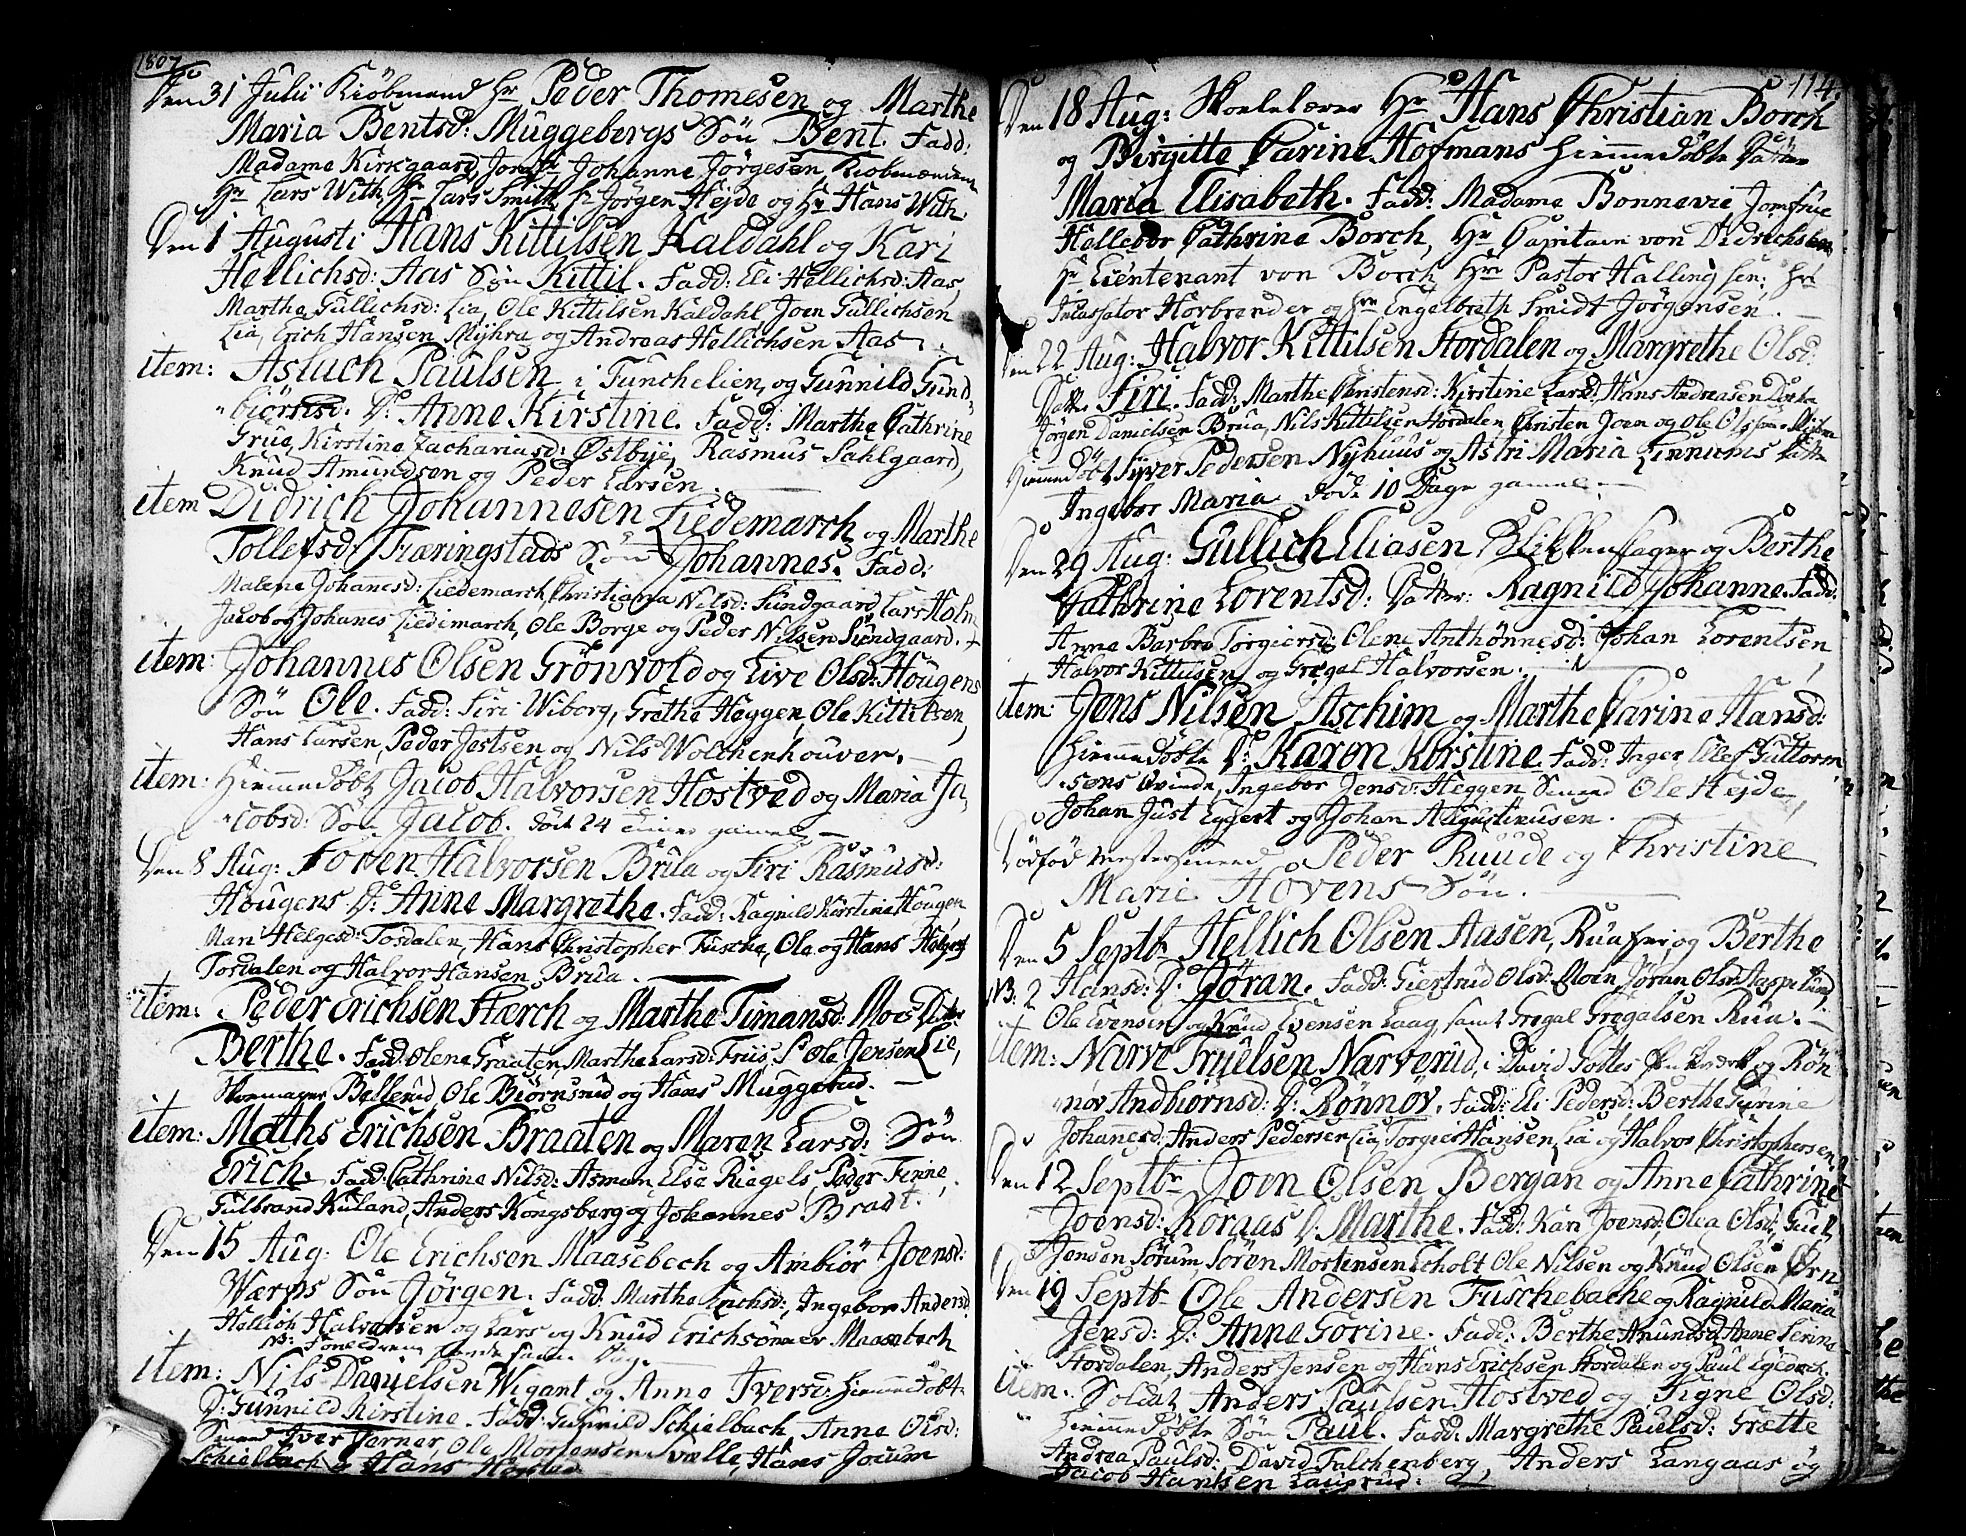 1807
Den 31 Julii Kiöbmand Hr Peder Thomesen og Marthe
Maria Bentsd: Muggebergs Sön Bent. Fadd:
Madame Kirkgaard, Jomfr Johanne Jörgesen, Kiobmændene
Hr Lars With, Hr Lars Smith, Hr Jörgen Hejde og Hr Hans With
Den 1 Augusti Hans Kittilsen Kaldahl og Kari
Hellichsd: Aas Sön Kittil. Fadd: Eli Hellichsd: Aas,
Marthe Gullichsd: Lia, Ole Kittilsen Kaldahl Joen Gullichsen
Lia, Erich Hansen Myhra og Andreas Hellichsen Aas
item: Asluch Paulsen i Funchelien, og Gunnild Gund
biörnsd. D: Anne Kirstine. Fadd: Marthe Cathrine
Grue, Kirstine Zachariasd: Östbye, Rasmus Sahlgaard,
Knud Amundsen og Peder Larsen.
item Didrich Johannesen Liedemarch og Marthe
Tollefsd: Træringstads Sön Johannes. Fadd:
Malene Johanesd: Liedemarch, Christiana Nilsd: Sundgaard, Lars Holm
Jacob og Johanes Liedemarch, Ole Borge og Peder Nilsen Sundgaard.
item: Johannes Olsen Grönvold og Live Olsd: Hougens
Sön Ole. Fadd: Siri Wiborg, Grethe Heggen, Ole Kittilsen,
Hans Larsen, Peder Jestsen og Nils Wolchenhouver.
item: Hiemmedöbt Jacob Halvorsen Hostved og Maria Ja
cobsd: Sön Jacob. död 24 timer gamel
Den 8 Aug: Foven Halvorsen Brua og Siri Rasmusd:
Hougens D: Anne Margrethe. Fadd: Ragnild Kirstine Hougen
Mari Helgesd: Tosdalen, Hans Christopher Fusche, Ole og Hans
Tosdalen og Halvor Hansen Brua.
item: Peder Erichsen Stærch og Marthe Timansd: Moes Datter
Berthe. Fadd: Olene Graaten, Marthe Larsd: Friis, Ole Jensen Lie,
Skoemager Bellerud, Ole Biörnsrud og Hans Muggerud.
item: Maths Erichsen Braaten og Maren Larsd: Sön
Erich. Fadd: Cathrine Nilsd: Asman, Else Riegels, Peder Finne,
Gulbrand Ruland, Anders Kongsberg og Johannes Bradt.
Den 15 Aug: Ole Erichsen Maasebech og Ambiör Joensd:
Wærps Sön Jörgen. Fadd: Marthe Erichsd:, Ingebor Andersd:
Hellich Halvorsen og Lars og Knud Erichsönner Maasebech
NB: Foreldrene samme Dag
item: Nils Danielsen Wigant og Anne Iversd: Hiemmedöbte
D: Gunnild Kirstine. Fadd: Gunnild Schielbach, Anne Olsd:
Smed Iver Varner, Ole Mortensen Svalle, Hans Jocum
Schielbach og Hans
114.
Den 18 Aug: Skoelelærer Hr Hans Christian Borch
og Birgitte Carine Hofmans Hiemmedöbte Datter
Maria Elisabeth. Fadd: Madame Bonnevie Jomfrue
Hellebor Cathrine Borch, Hr Capitain von Didrichsen
Hr Lieutenant von Borch, Hrr Pastor Halling sen: Hr
Incassator Horbrender og Hrr Engelbreth Smidt Jörgensen.
Den 22 Aug: Halvor Kittilsen Stordalen og Margrethe Olsd:
Datt. Siri. Fadd: Marthe Christensd: Kirstine Larsd: Hans Andreasen
Jörgen Danielsen Brua, Nils Kittilsen Stordalen, Christen Joen og Ole
Hiemmedöbt Syver Pedersen Nyhuus og Astri Maria Linnums Datte
Ingebor Maria död 10 Dage gamel.
Den 29 Aug: Gullich Eliasen Blikkenslager og Berthe
Cathrine Lorentsd: Datter: Ragnild Johanne. Fadd:
Anne Barbro Torgiersd: Olene Anthönnesd: Johan Lorentsen
Halvor Kittilsen og Gregal Halvorsen.
item: Jens Nilsen Aschim og Marthe Carine Hansd:
Hiemmedöbte D: Karen Kirstine. Fadd: Inger Ellef Guttorm
sens Qvinde, Ingebor Jensd: Heggen Smed Ole Hejde,
Johan Just Eggert og Johan Augustinusen.
Dödföd Mestersmed Peder Ruude og Christine
Marie Hovens Sön.
Den 5 Septbr Hellich Olsen Aasen, Rua Eie, og Berthe
NB: 2 Hansd: D: Jöran. Fadd: Giertrud Olsd: Moen Jöran Olsd: Aaspelund,
Ole Evensen og Knud Evensen Laag, samt Gregal Gregalsen Rua.
item: Narve Truelsen Narverud, i David Gottes og Rön
növ Andbiörnsd: D: Rönnöv. Fadd: Eli Pedersd: Berthe Turine
Johanesd: Anders Pedersen Lia, Torgier Hansen Lia og Halvor Christophersen
Den 12 Septbr Joen Olsen Bergan og Anne Cathrine
Joensd: Koraas D: Marthe. Fadd: Kari Joensd:, Olea Olsd:,
Jensen Sörum, Sören Mortensen Echolt Ole Nilsen og Knud Olsen Örn
Den 19 Septb Ole Andersen Fuschebache og Ragnild Maria
Jensd: D: Anne Gorine. Fadd: Berthe Amundsd: Anne Serine
Stordalen, Anders Jensen og Hans Erichsen Stordalen og Paul
item. Soldat Anders Paulsen Hostved og Signe Olsd:
Hiemmedöbte Sön Paul. Fadd: Margrethe Paulsd: Grætte
Andrea Paulsd: David Falchenberg, Anders Langaas og
Jacob Hansen Laugrud.